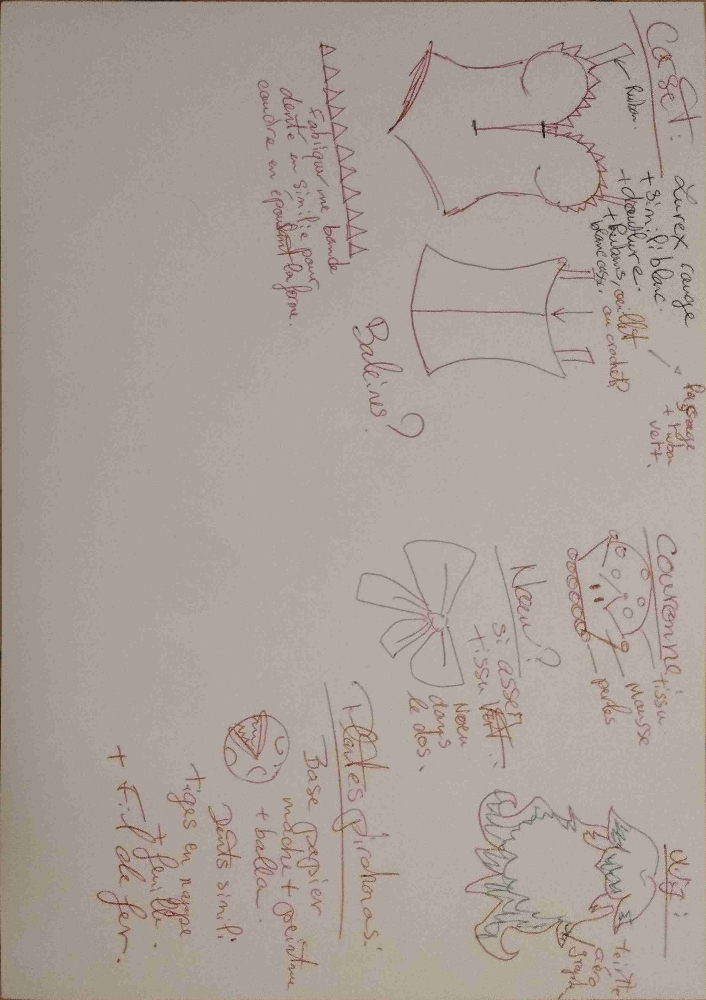 Corset:
Lurex rouge
+ simili blanc.
+ doublure.
+ Rubans, oeillet
blanc cassé, ou crochet?
Ruban.
Passage
+ ruban
vert.
Fabriquer une bande
denté en simili pour
coudre en épousant la forme.
Baleines?
Couronne:
tissu
mousse
perles
Noeu?
si assez
tissu vert.
Noeu
dans
le dos.
Wig:
teinte
Plantes pirahnas:
Base papier
maché + peinture
+ balla.
Dents simili
tiges en nappe
+ feuille.
+ Fil de fer.